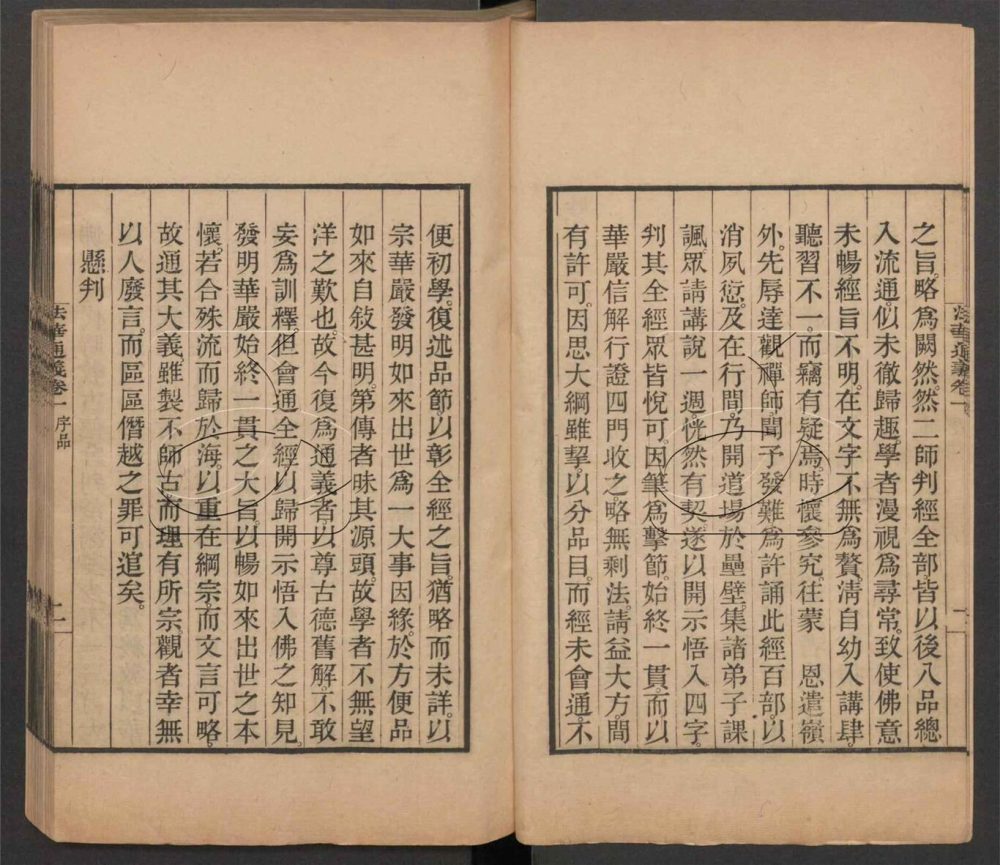 之旨。略爲闕然。然二師判經全部。皆以後八品總
入流通。似未徹歸趣。學者漫視爲尋常。致使佛意
未暢經旨不明。在文字不無爲贅。淸自幼入講肆。
聽習不一。而竊有疑焉。時懷參究。往蒙　恩遣嶺
外。先辱達觀禪師。聞予發難。爲許誦此經百部。以
消夙愆。及在行間。乃開道場於壘壁。集諸弟子課
諷。眾請講說一週。恍然有契。遂以開示悟入四字。
判其全經。眾皆悅可。因筆爲擊節。始終一貫。而以
華嚴信解行證四門收之。略無剩法。請益大方間
有許可。因思大綱雖挈。以分品目。而經未會通。不
法華通義卷一
一
便初學。復述品節。以彰全經之旨。猶略而未詳。以
宗華嚴發明如來出世爲一大事因緣。於方便品
如來自敍甚明。第傳者昧其源頭。故學者不無望
洋之歎也。故今復爲通義者。以尊古德舊解。不敢
妄爲訓釋。但會通全經。以歸開示悟入佛之知見。
發明華嚴始終一貫之大旨。以暢如來出世之本
懷。若合殊流而歸於海。以重在綱宗。而文言可略。
故通其大義。雖製不師古。而理有所宗。觀者幸無
以人廢言。而區區僭越之罪可逭矣。
懸判
法華通義卷一　序品
二